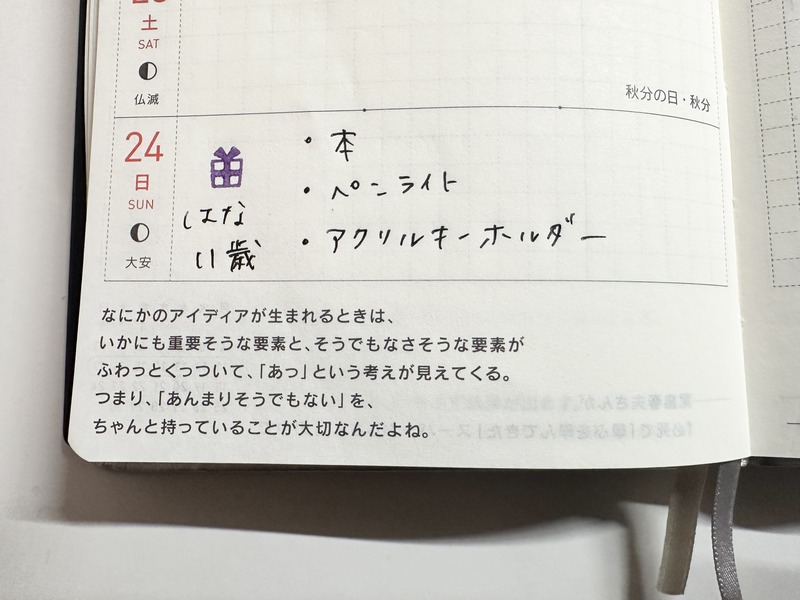 土
SAT
仏滅
秋分の日・秋分
24
日
SUN
大安
はな
11歳
・本
・ペンライト
・アクリルキーホルダー
なにかのアイディアが生まれるときは、
いかにも重要そうな要素と、そうでもなさそうな要素が
ふわっとくっついて、「あっ」という考えが見えてくる。
つまり、「あんまりそうでもない」を、
ちゃんと持っていることが大切なんだよね。